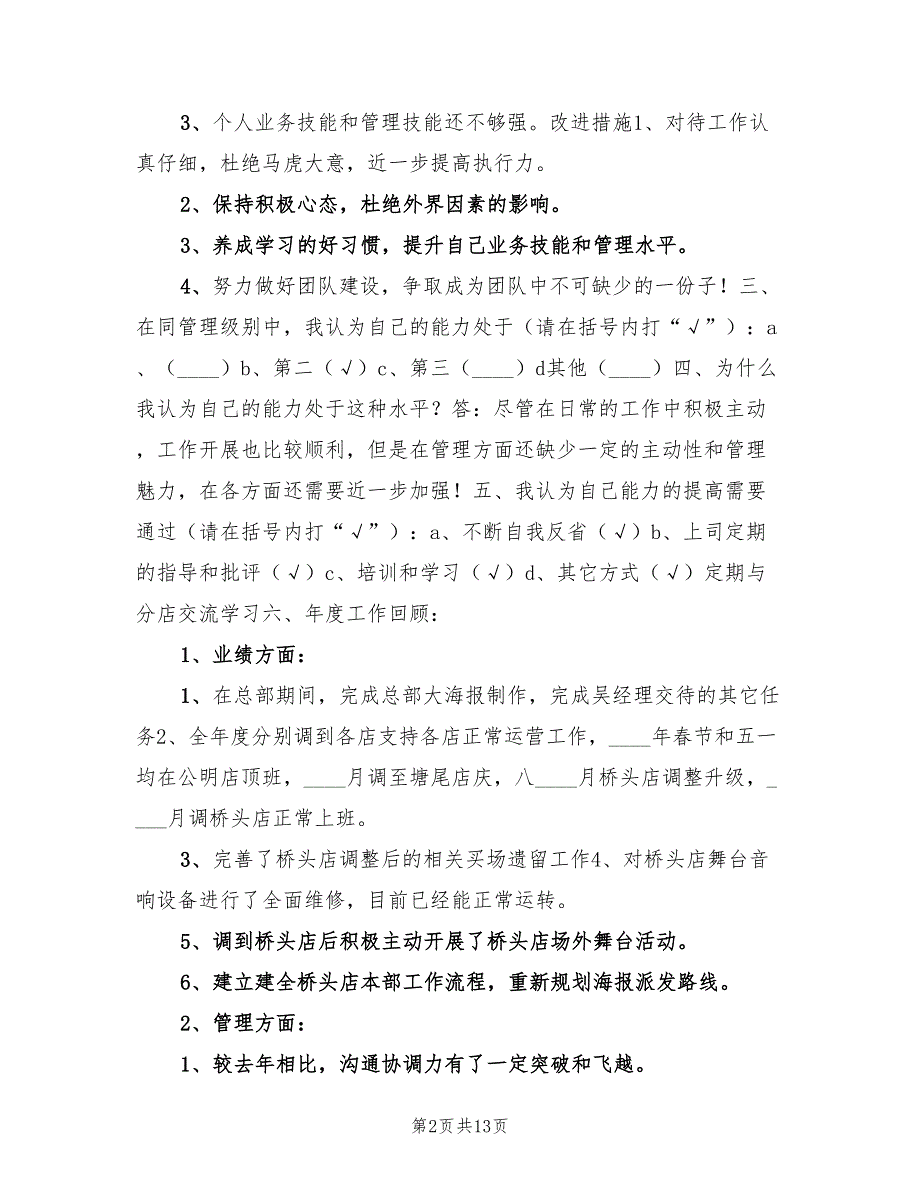 3、个人业务技能和管理技能还不够强。改进措施1、对待工作认
真仔细，杜绝马虎大意，近一步提高执行力。
2、保持积极心态，杜绝外界因素的影响。
3、养成学习的好习惯，提升自己业务技能和管理水平。
4、努力做好团队建设，争取成为团队中不可缺少的一份子！三、
在同管理级别中，我认为自己的能力处于（请在括号内打“√”）：a
、（____）b、第二（√）c、第三（____）d其他（____）四、为什么
我认为自己的能力处于这种水平？答：尽管在日常的工作中积极主动
，工作开展也比较顺利，但是在管理方面还缺少一定的主动性和管理
魅力，在各方面还需要近一步加强！五、我认为自己能力的提高需要
通过（请在括号内打“√”）：a、不断自我反省（√）b、上司定期
的指导和批评（√）c、培训和学习（√）d、其它方式（√）定期与
分店交流学习六、年度工作回顾：
1、业绩方面：
1、在总部期间，完成总部大海报制作，完成吴经理交待的其它任
务2、全年度分别调到各店支持各店正常运营工作，____年春节和五一
均在公明店顶班，____月调至塘尾店庆，八____月桥头店调整升级，_
___月调桥头店正常上班。
3、完善了桥头店调整后的相关买场遗留工作4、对桥头店舞台音
响设备进行了全面维修，目前已经能正常运转。
5、调到桥头店后积极主动开展了桥头店场外舞台活动。
6、建立建全桥头店本部工作流程，重新规划海报派发路线。
2、管理方面：
1、较去年相比，沟通协调力有了一定突破和飞越。
第2页共13页